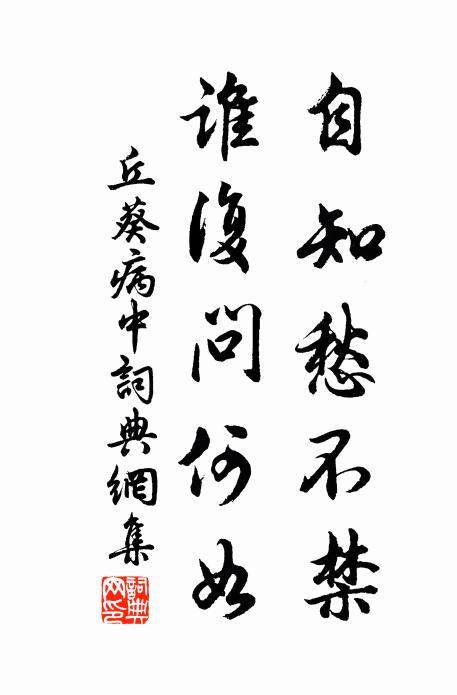 自知愁不禁
誰復問何如
丘葵病中詞典網集
詞典网印